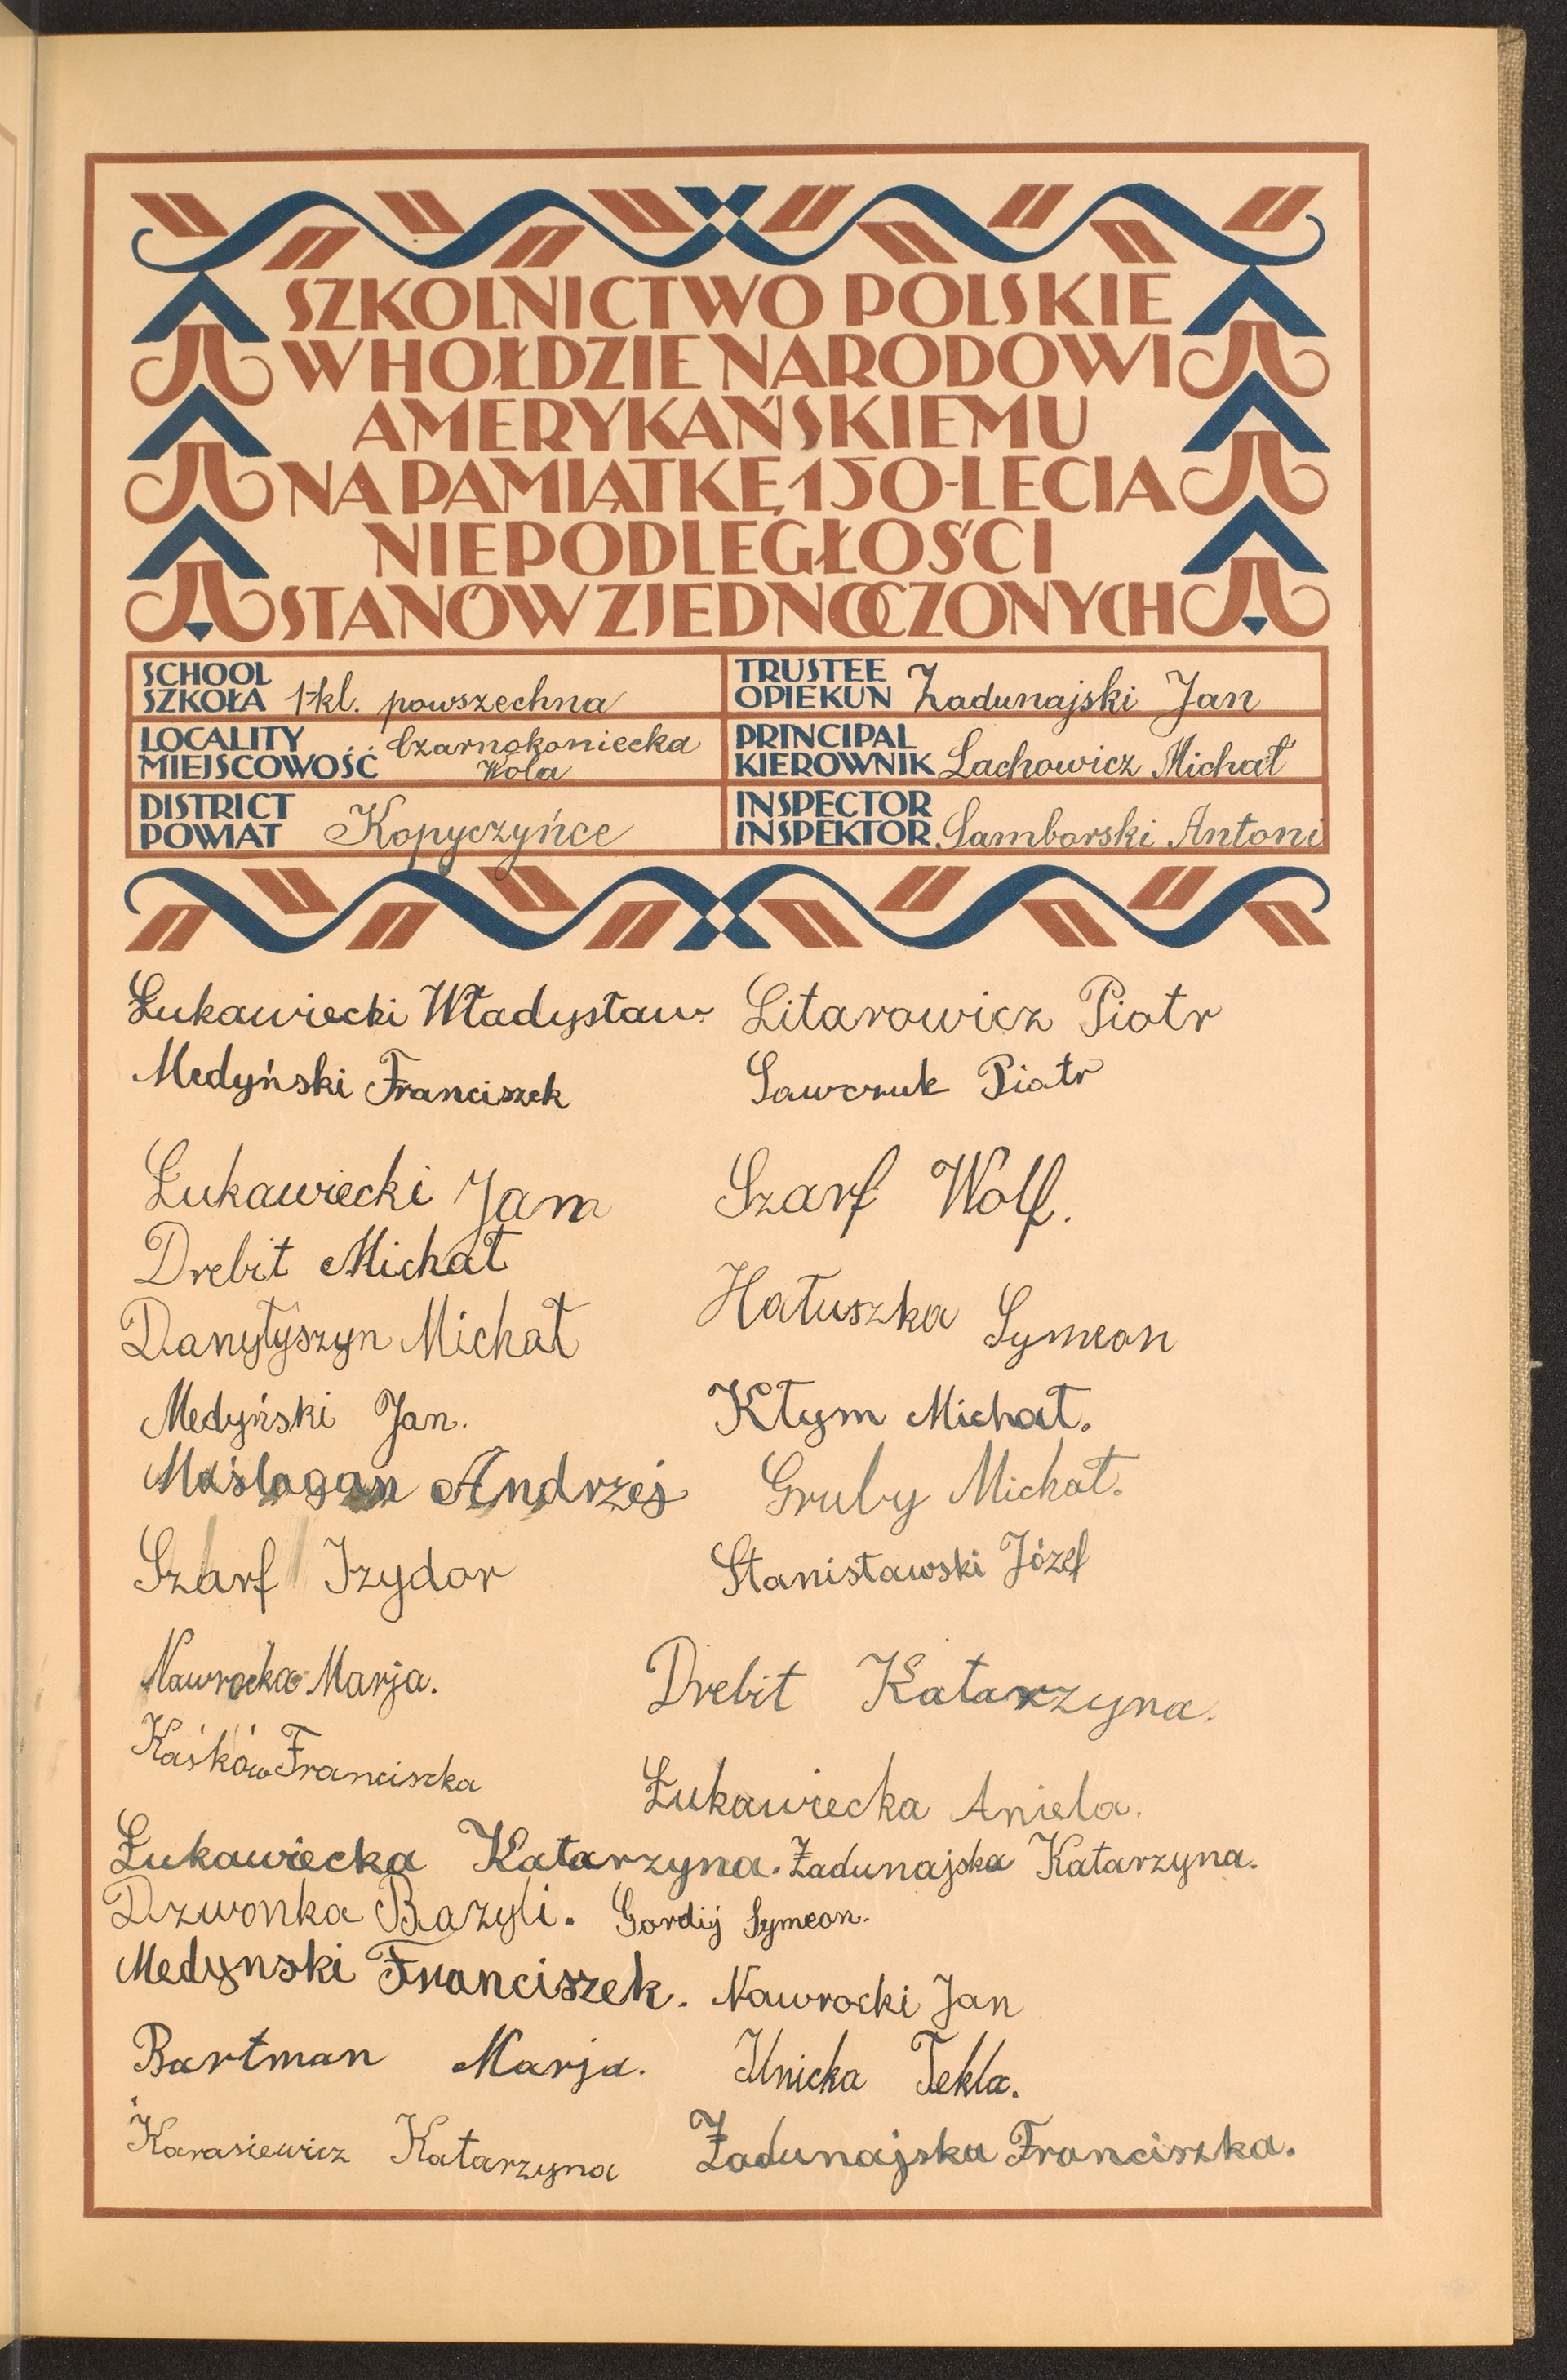 SZKOLNICTWO POLSKIE
W HOŁDZIE NARODOWI
AMERYKAŃSKIEMU
NA PAMIĄTKĘ 150-LECIA
NIEPODLEGŁOŚCI
STANÓW ZJEDNOCZONYCH
SCHOOL
SZKOŁA 1-kl. powszechna
TRUSTEE
OPIEKUN Zadunajski Jan
LOCALITY
MIEJSCOWOŚĆ Czarnokoniecka
Wola
PRINCIPAL
KIEROWNIK Lachowicz Michał
DISTRICT
POWIAT Kopyczyńce
INSPECTOR
INSPEKTOR Samborski Antoni
Łukawiecki Władysław Litarowicz Piotr
Medyński Franciszek Sawczuk Piotr
Łukawiecki Jan Szarf Wolf.
Drebit Michał
Danyłyszyn Michał Hałuszka Symeon
Medyński Jan. Kłym Michał.
Maślagan Andrzej Gruby Michał.
Szarf Izydor Stanisławski Józef
Nawrocka Marja. Drebit Katarzyna.
Kaśków Franciszka Łukawiecka Aniela.
Łukawiecka Katarzyna. Zadunajska Katarzyna.
Dzwonka Bazyli. Gordij Symeon.
Medynski Franciszek. Nawrocki Jan
Bartman Marja. Ilnicka Tekla.
Karasiewicz Katarzyna Zadunajska Franciszka.